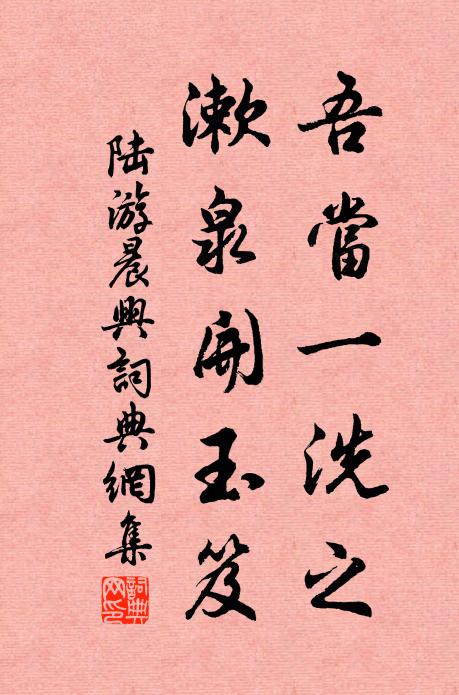 吾當一洗之
漱泉開玉笈
陸游晨興詞典網集
詞典網印